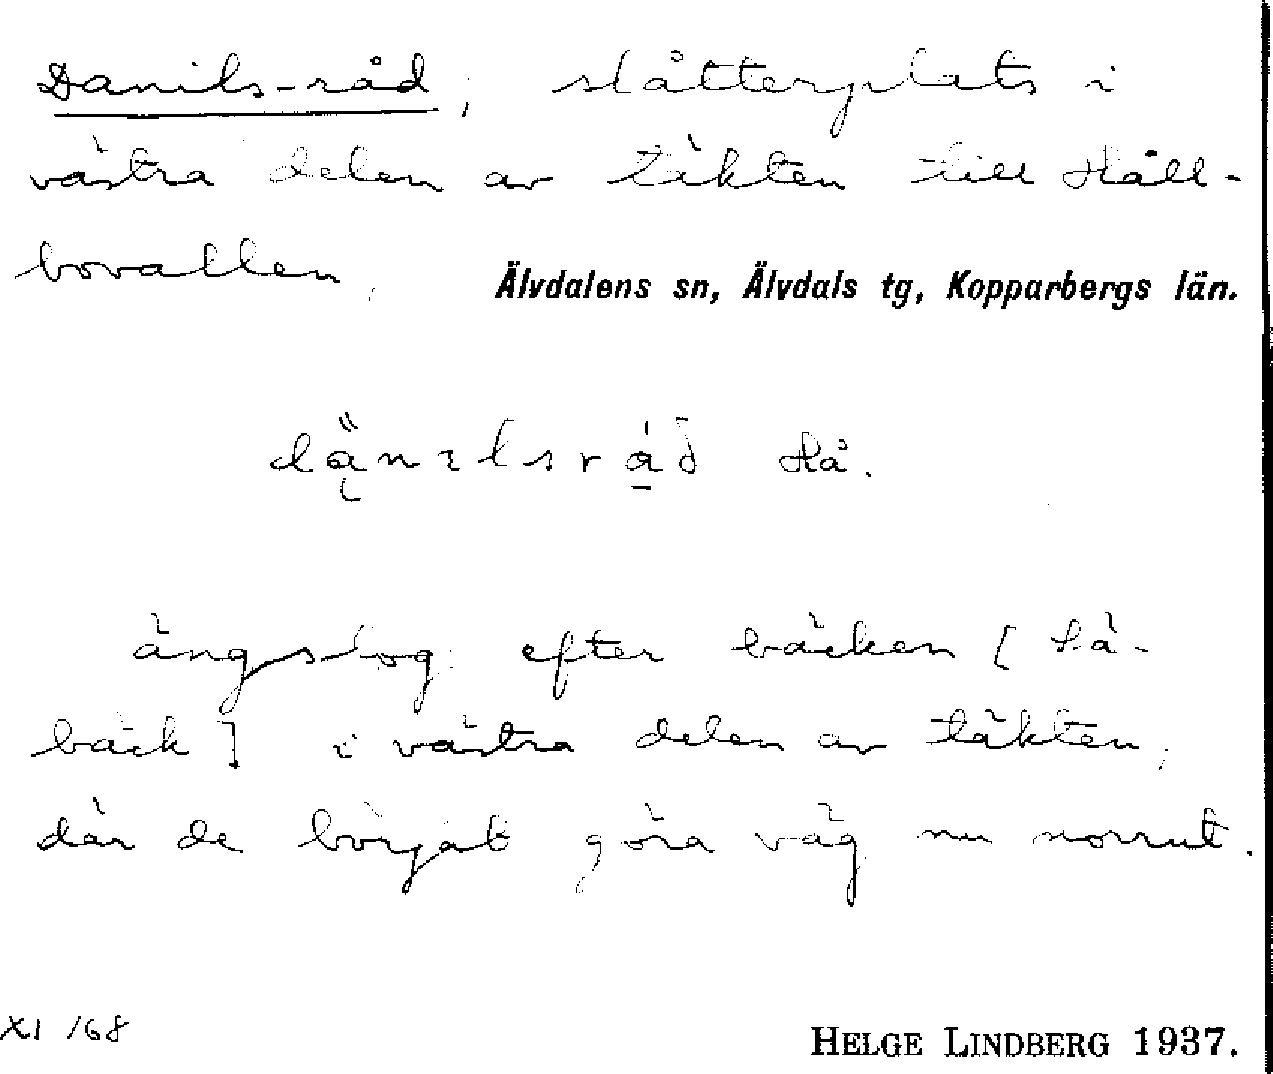 Danils-råd, slåtterplats i
västra delen av täkten till Håll-
bovallen,
Älvdalens sn, Älvdals tg, Kopparbergs län.
Hå.
ängsslog efter bäcken [
bäck] i västra delen av täkten,
där de börjat göra väg nu norrut.
XI /68
HELGE LINDBERG 1937.